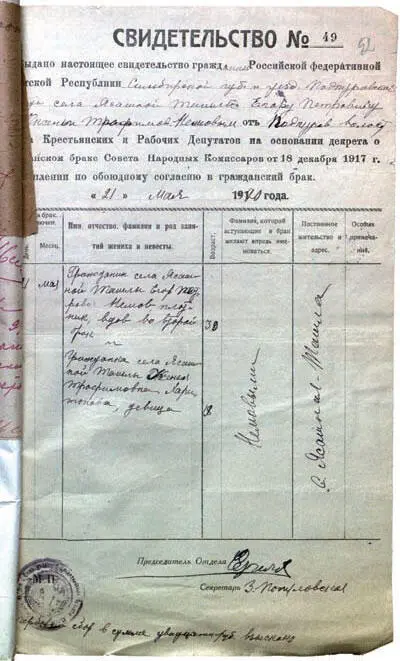 СВИДЕТЕЛЬСТВО № 49
52
ыдано настоящее свидетельство гражданам Российской федеративной
тской Республики Симбирской губ и уезд Подкуровской
села Ясашной Ташлы Егору Петровичу
Ксении Трофимов. Немовым от Подкуров. волост
а Крестьянских и Рабочих Депутатов на основании декрета о
анском браке Совета Народных Комиссаров от 18 декабря 1917 г.
плении по обоюдному согласию в гражданский брак.
" 21 " мая 1920 года.
я брак.
ючения.
Месяц.
Имя, отчество, фамилия и род заня-
тий жениха и невесты.
Возраст.
Фамилия, которой
вступающие в брак
желают впредь име-
новаться.
Постоянное
жительство и
адрес.
Особые
примеча-
ния.
1 мая
Гражданин села Ясаш-
ной Ташлы Егор Пет-
ров Немов плот-
ник, вдов во второй
брак
и
Гражданка села Ясаш-
ной Ташлы Ксения
Трофимовна Хари-
тонова, девица
30
18
Немовыми
с. Ясашная-Ташла
Председатель Отдела
Секретарь З. Популовская
М.П.
сбор в сумме двадцать руб взыскано